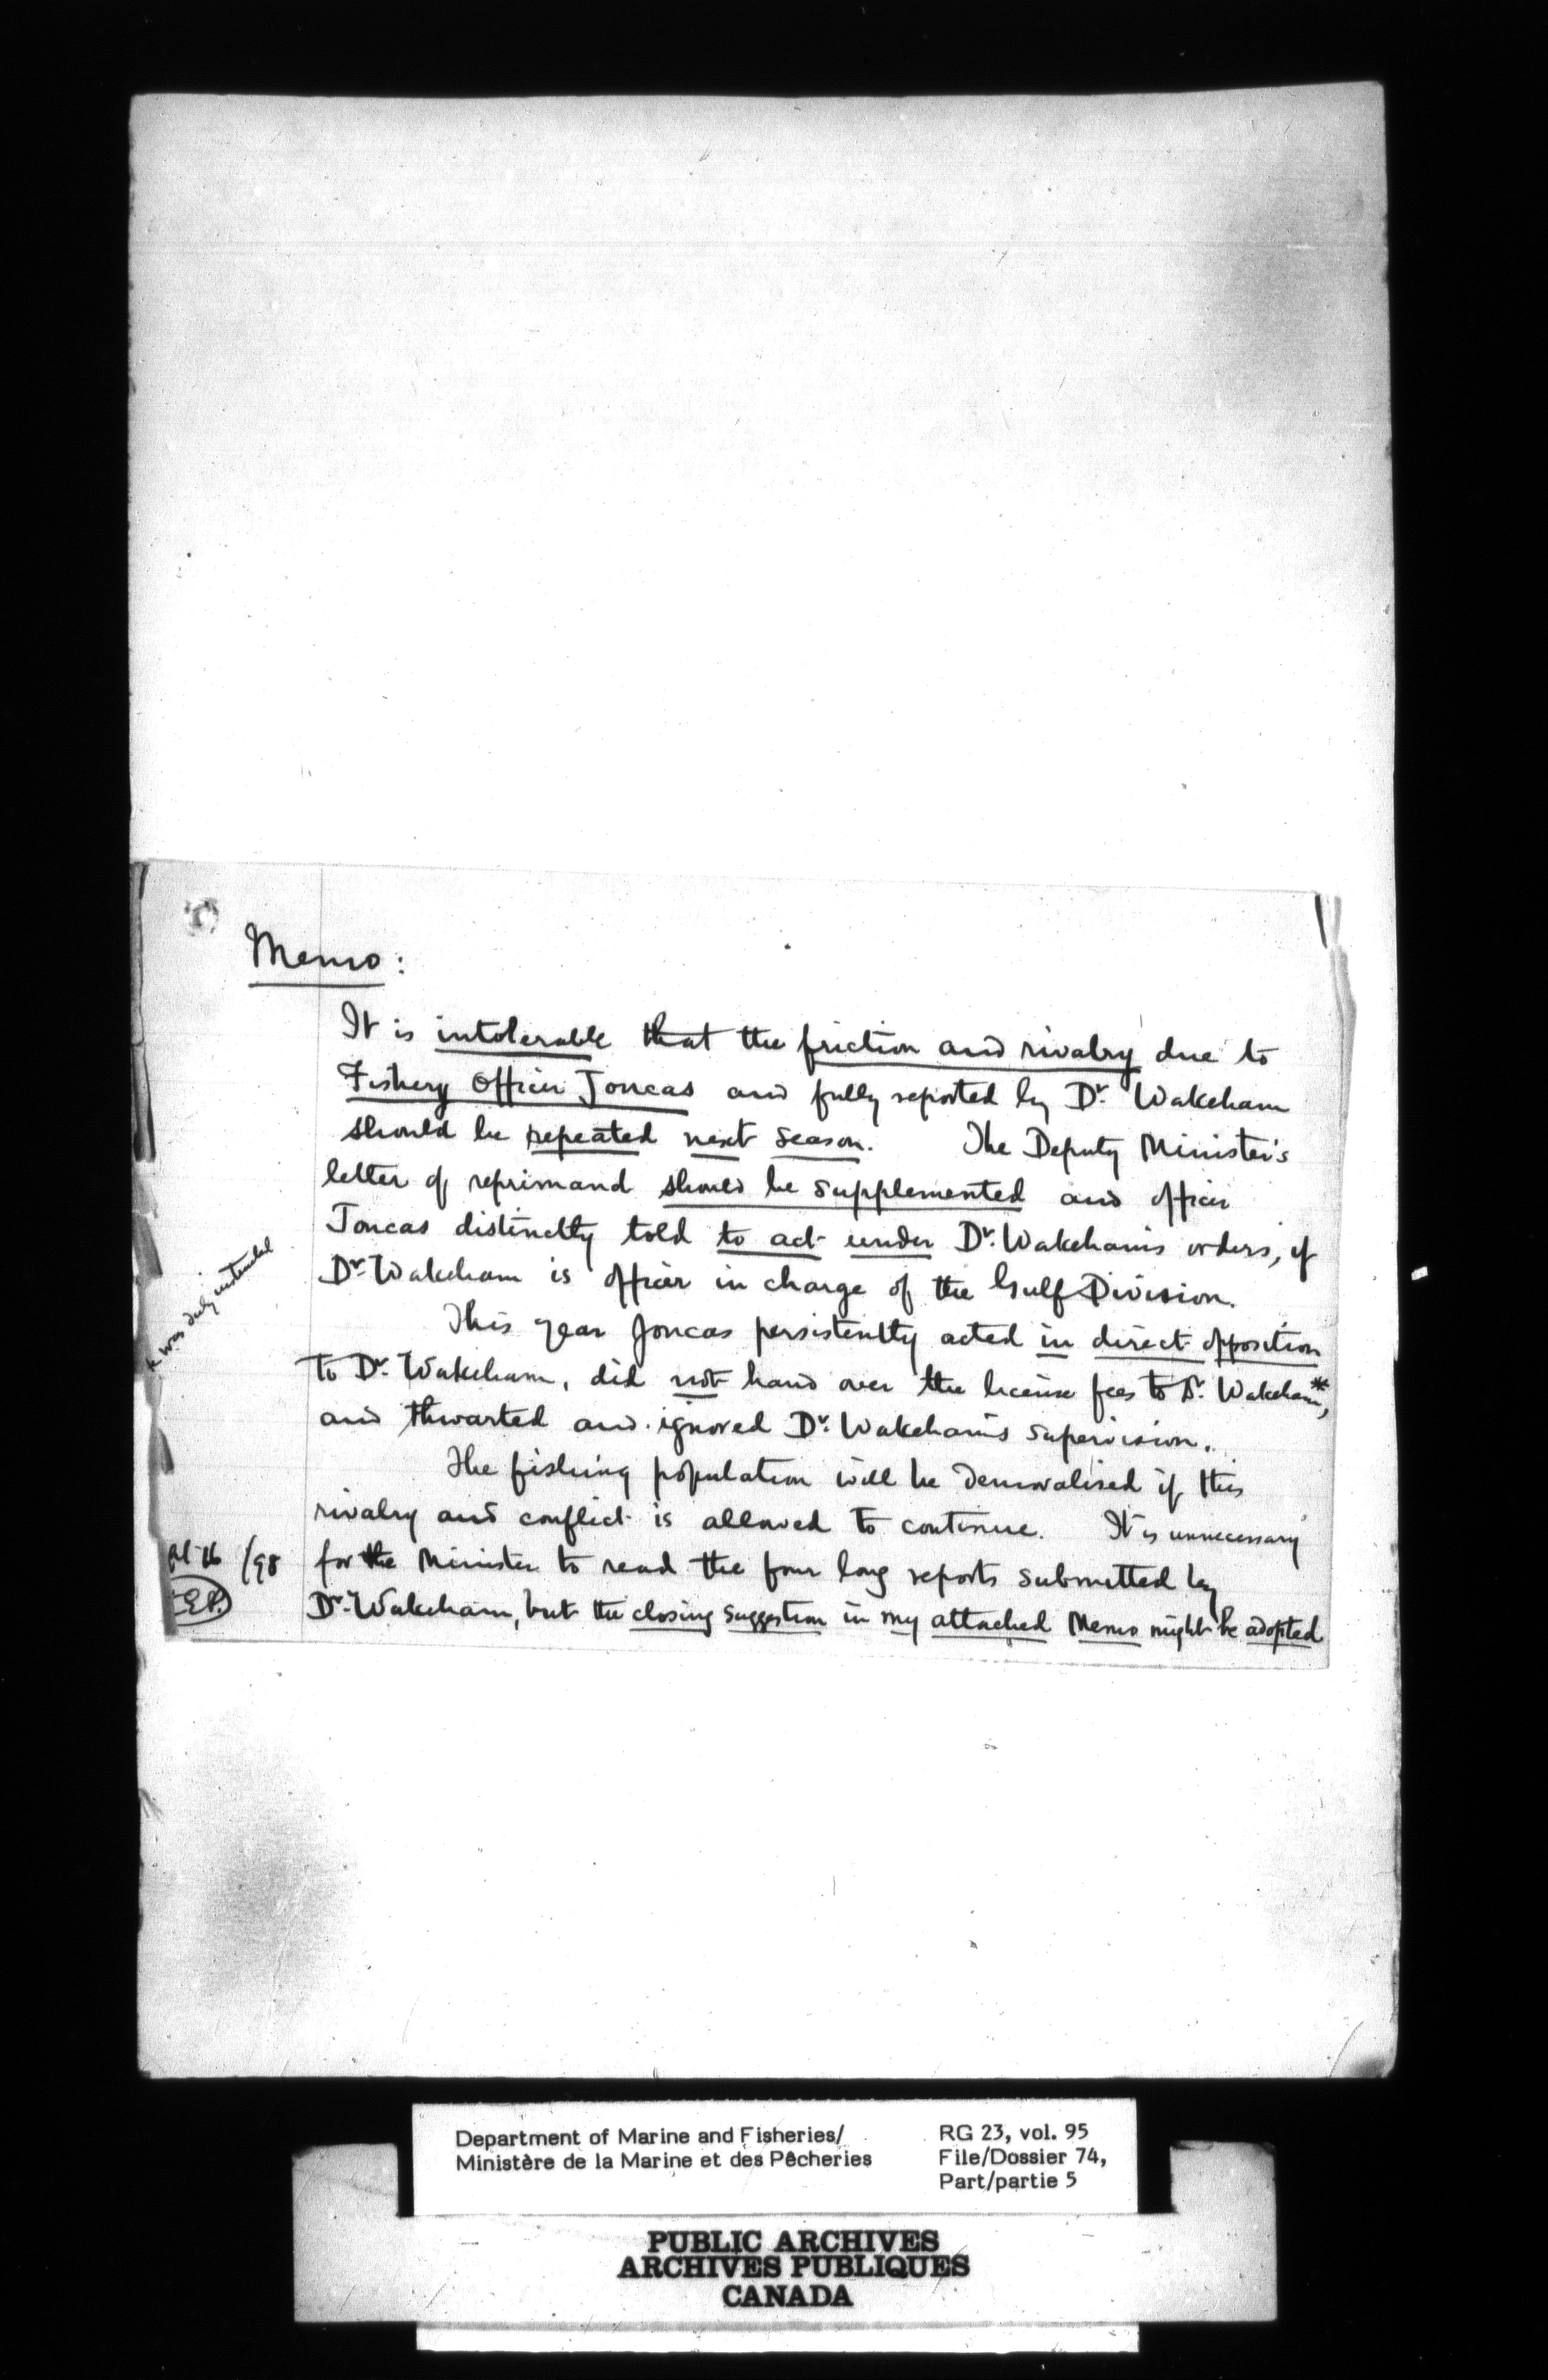 Memo:
It is intolerable that the friction and rivalry due to
Fishery Officer Joncas and fully reported by Dr. Wakeham
should be repeated next season. The Deputy Minister's
letter of reprimand should be supplemented and officer
Joncas distinctly told to act under Dr. Wakeham's orders, if
Dr. Wakeham is officer in charge of the Gulf Division.
This year Joncas persistently acted in direct opposition
to Dr. Wakeham, did not hand over the license fees to Dr. Wakeham*,
and thwarted and ignored Dr. Wakeham's supervision.
The fishing population will be demoralised if this
rivalry and conflict is allowed to continue. It is unnecessary
for the Minister to read the four long reports submitted by
Dr. Wakeham, but the closing suggestion in my attached Memo might be adopted
was duly
16/98
Department of Marine and Fisheries/
Ministère de la Marine et des Pêcheries
RG 23, vol. 95
File/Dossier 74,
Part/partie 5
PUBLIC ARCHIVES
ARCHIVES PUBLIQUES
CANADA